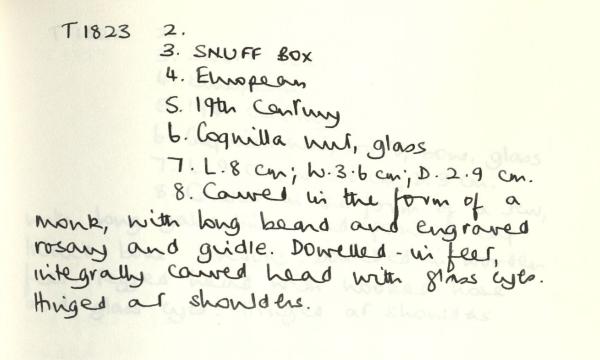 T1823 2.
3. SNUFF BOX
4. European
5. 19th Century
6. Coquilla nut, glass
7. L. 8 cm; W. 3.6 cm; D. 2.9 cm.
8. Carved in the form of a
monk, with long beard and engraved
rosary and girdle. Dowelled-in feet,
integrally carved head with glass eyes.
Hinged at shoulders.